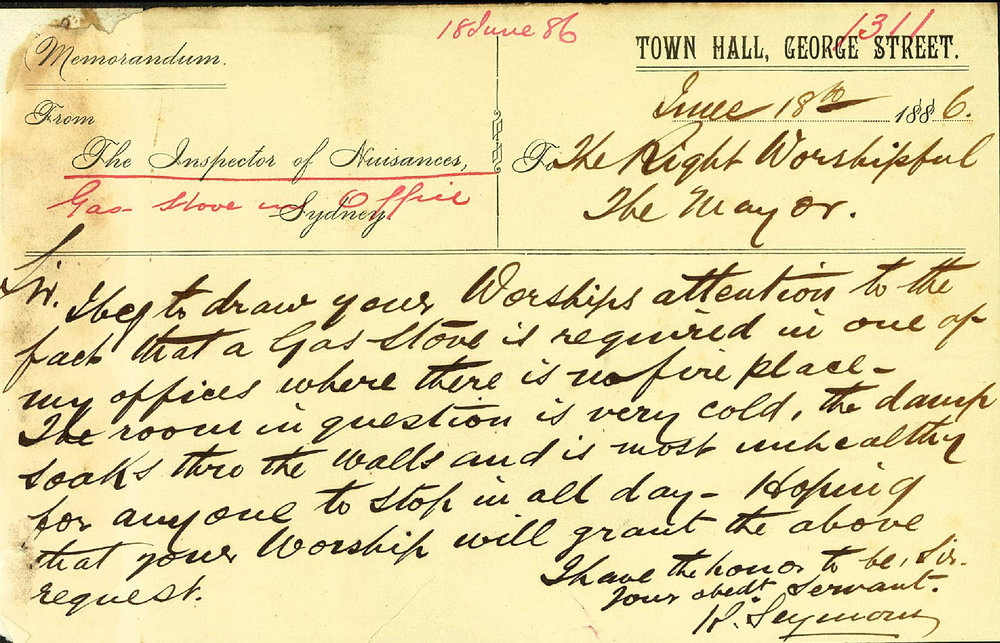 18 June 86
1311
Memorandum.
TOWN HALL, GEORGE STREET.
June 18th 1886.
From
The Inspector of Nuisances,
Sydney
Gas Stove in Office
To The Right Worshipful
The Mayor.
Sir.
I beg to draw your Worships attention to the
fact that a Gas Stove is required in one of
my offices where there is no fire place -
The room in question is very cold, the damp
soaks thro the walls and is most unhealthy
for anyone to stop in all day - Hoping
that your Worship will grant the above
request.
I have the honor to be, Sir.
Your obedt Servant.
R. Seymour